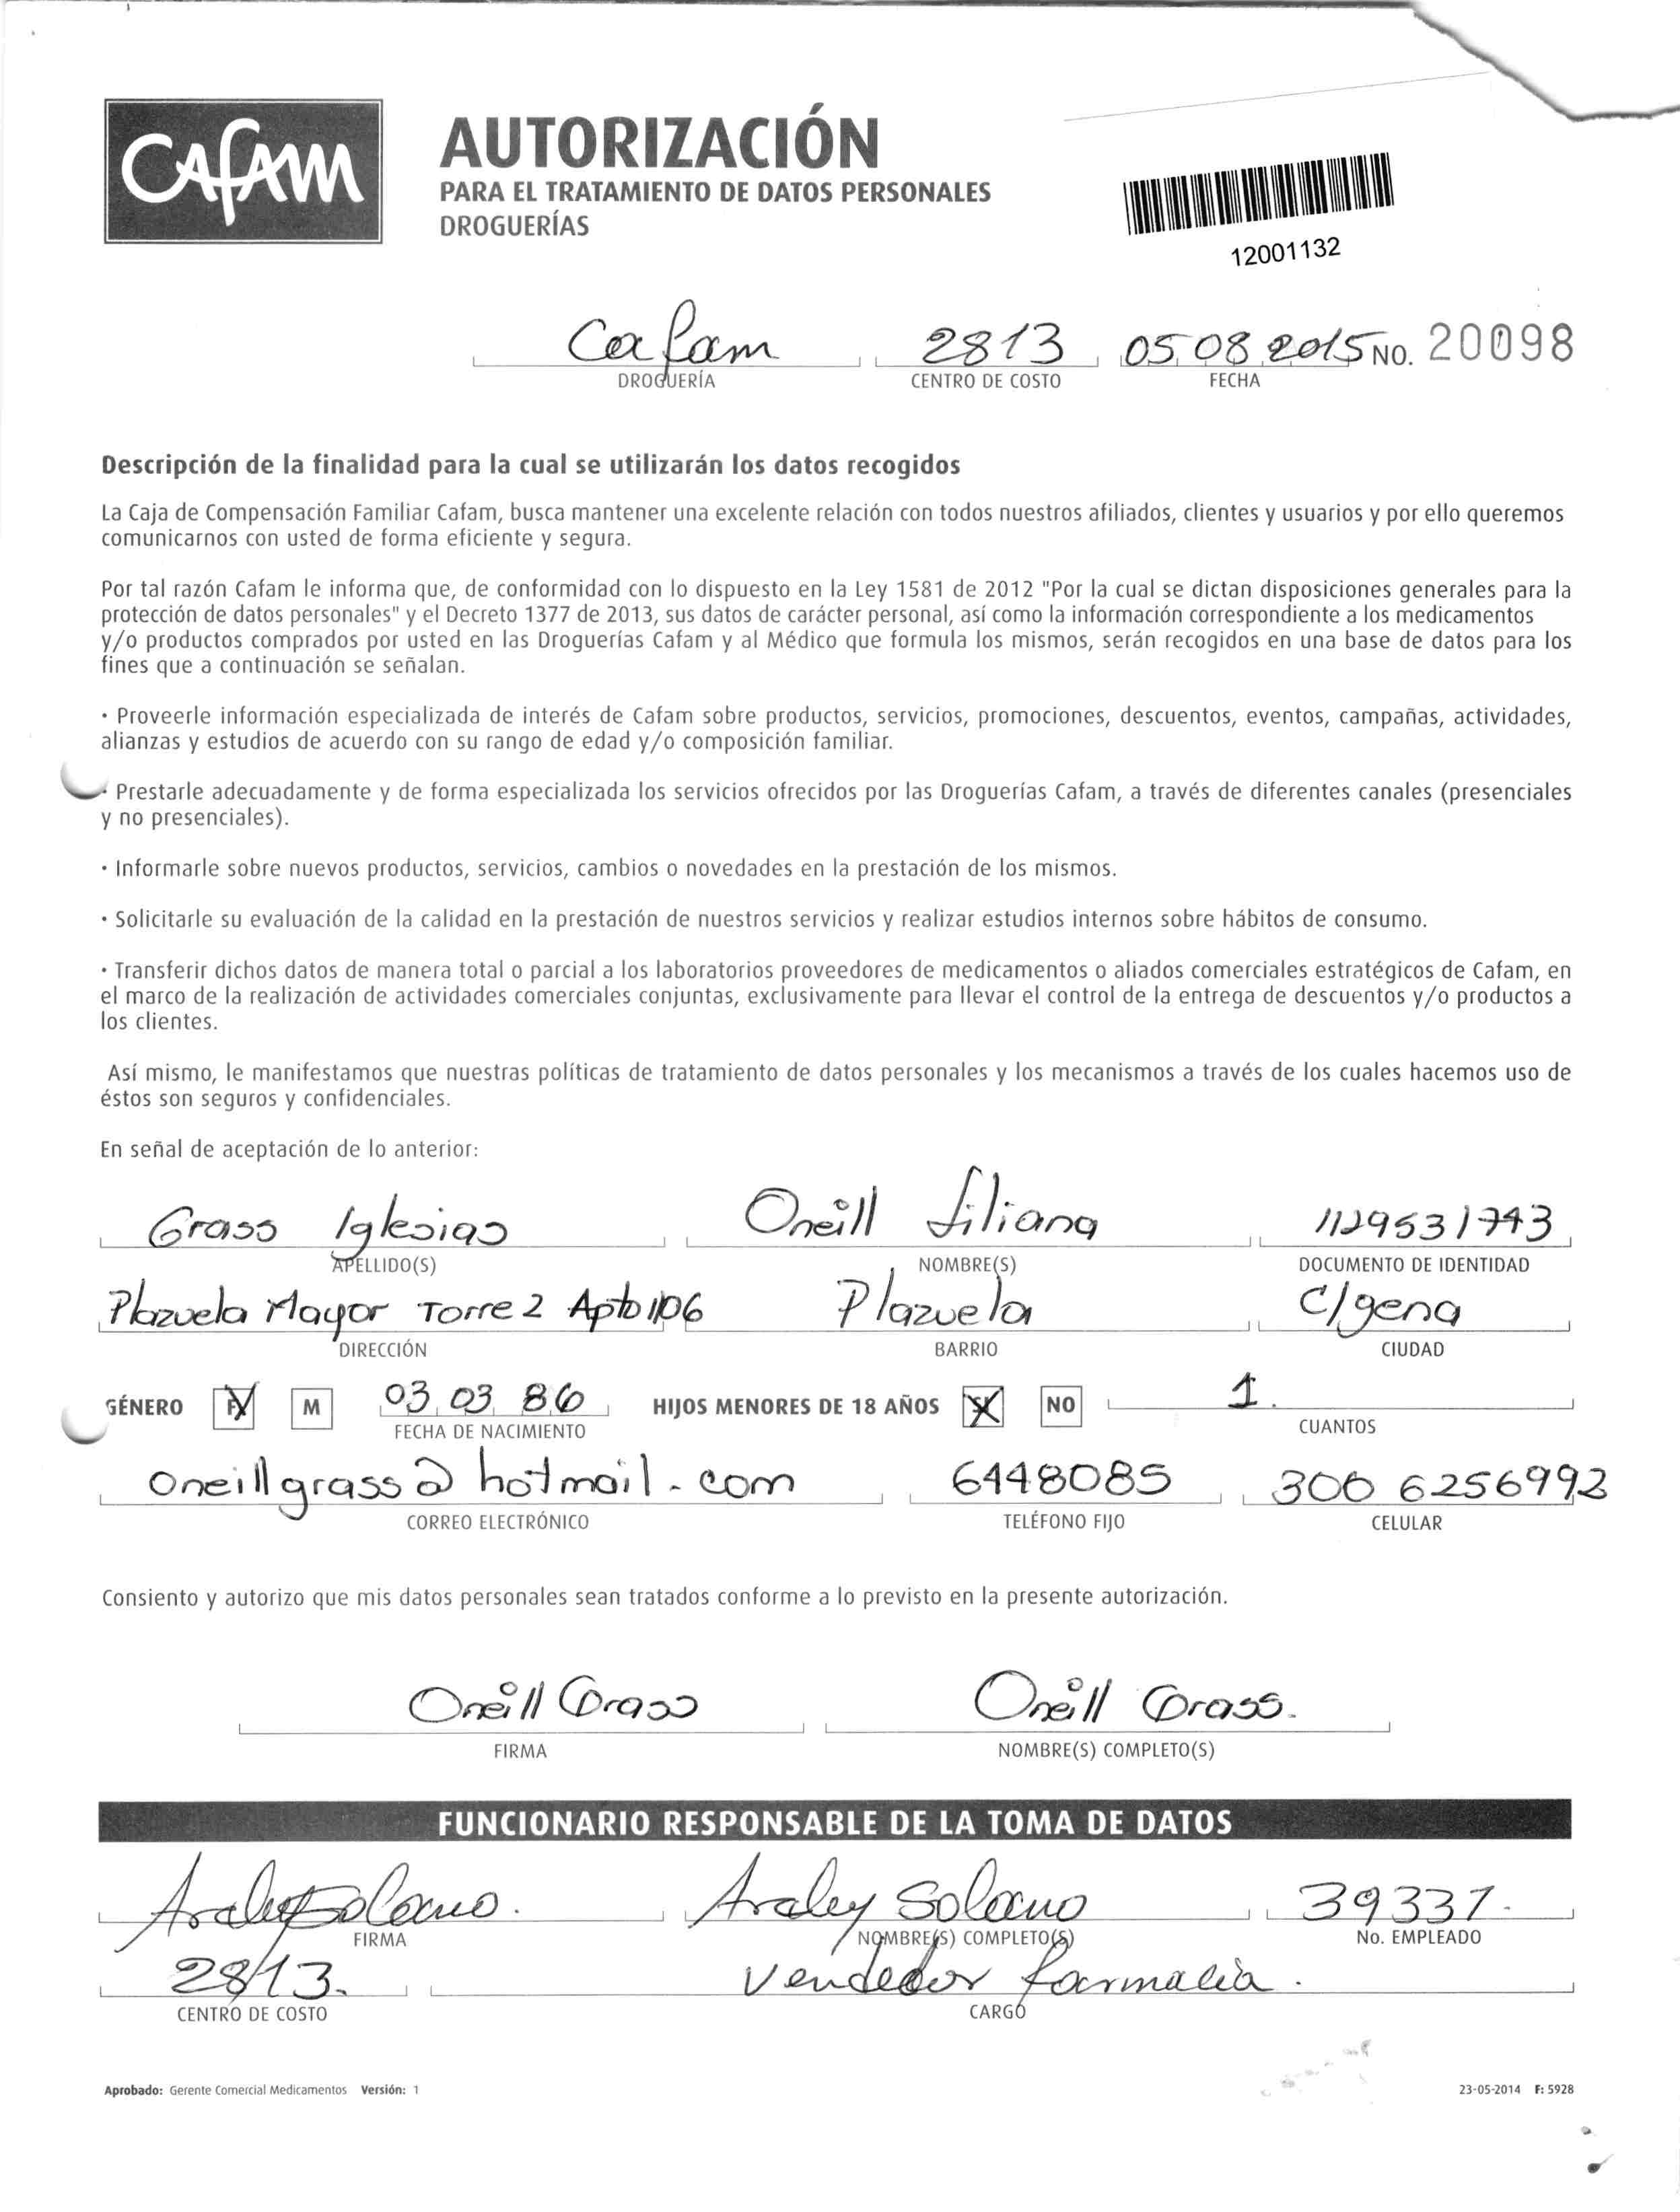 CAFAM
AUTORIZACIÓN
PARA EL TRATAMIENTO DE DATOS PERSONALES
DROGUERÍAS
12001132
Cafam 2813 05 08 2015 NO. 20098
DROGUERÍA CENTRO DE COSTO FECHA
Descripción de la finalidad para la cual se utilizarán los datos recogidos
La Caja de Compensación Familiar Cafam, busca mantener una excelente relación con todos nuestros afiliados, clientes y usuarios y por ello queremos
comunicarnos con usted de forma eficiente y segura.
Por tal razón Cafam le informa que, de conformidad con lo dispuesto en la Ley 1581 de 2012 "Por la cual se dictan disposiciones generales para la
protección de datos personales" y el Decreto 1377 de 2013, sus datos de carácter personal, así como la información correspondiente a los medicamentos
y/o productos comprados por usted en las Droguerías Cafam y al Médico que formula los mismos, serán recogidos en una base de datos para los
fines que a continuación se señalan.
• Proveerle información especializada de interés de Cafam sobre productos, servicios, promociones, descuentos, eventos, campañas, actividades,
alianzas y estudios de acuerdo con su rango de edad y/o composición familiar.
• Prestarle adecuadamente y de forma especializada los servicios ofrecidos por las Droguerías Cafam, a través de diferentes canales (presenciales
y no presenciales).
• Informarle sobre nuevos productos, servicios, cambios o novedades en la prestación de los mismos.
• Solicitarle su evaluación de la calidad en la prestación de nuestros servicios y realizar estudios internos sobre hábitos de consumo.
• Transferir dichos datos de manera total o parcial a los laboratorios proveedores de medicamentos o aliados comerciales estratégicos de Cafam, en
el marco de la realización de actividades comerciales conjuntas, exclusivamente para llevar el control de la entrega de descuentos y/o productos a
los clientes.
Así mismo, le manifestamos que nuestras políticas de tratamiento de datos personales y los mecanismos a través de los cuales hacemos uso de
éstos son seguros y confidenciales.
En señal de aceptación de lo anterior:
Grass Iglesias Oneill Liliana 1129531743
APELLIDO(S) NOMBRE(S) DOCUMENTO DE IDENTIDAD
Plazuela Mayor Torre 2 Apto 1106 Plazuela C/gena
DIRECCIÓN BARRIO CIUDAD
GÉNERO F M 03 03 86 HIJOS MENORES DE 18 AÑOS SI NO 1.
FECHA DE NACIMIENTO CUANTOS
oneillgrass@hotmail.com 6448085 300 6256992
CORREO ELECTRÓNICO TELÉFONO FIJO CELULAR
Consiento y autorizo que mis datos personales sean tratados conforme a lo previsto en la presente autorización.
Oneill Grass Oneill Grass.
FIRMA NOMBRE(S) COMPLETO(S)
FUNCIONARIO RESPONSABLE DE LA TOMA DE DATOS
Araley Solano. Araley Solano 39331.
FIRMA NOMBRE(S) COMPLETO(S) No. EMPLEADO
2813. Vendedor farmacia.
CENTRO DE COSTO CARGO
Aprobado: Gerente Comercial Medicamentos Versión: 1 23-05-2014 F: 5928